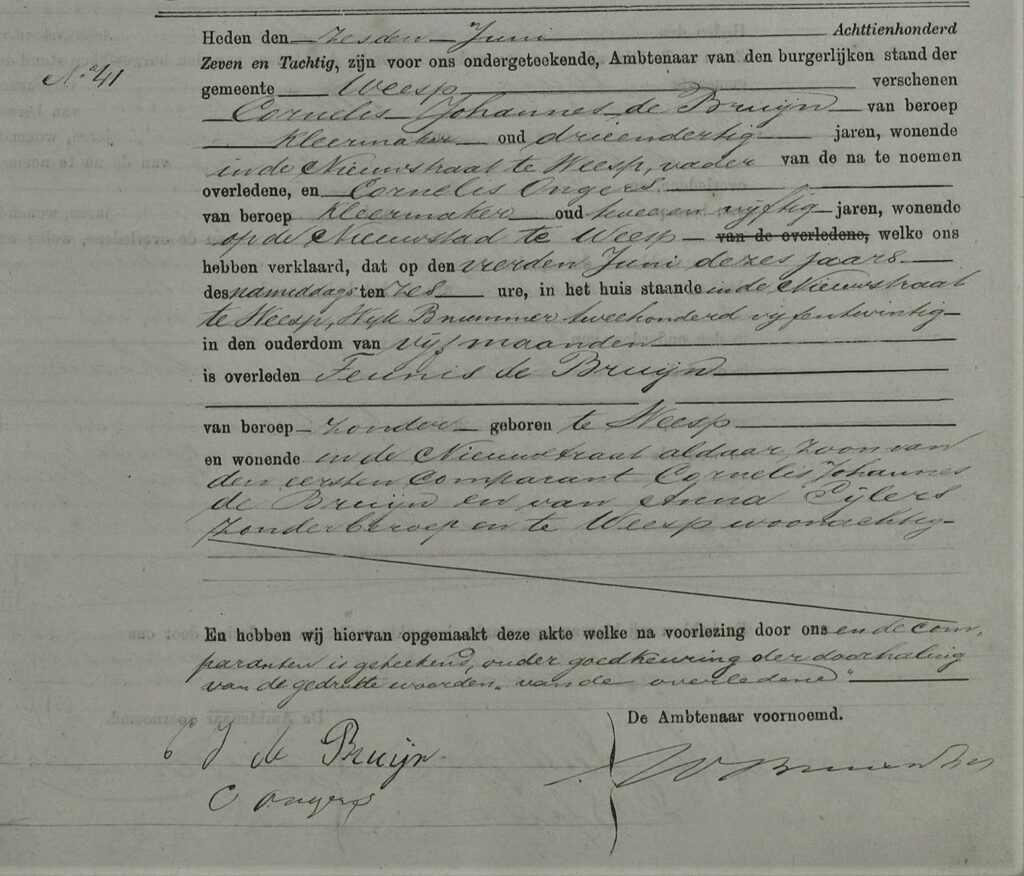 Heden den zesden Juni Achttienhonderd
No. 41
Zeven en Tachtig, zijn voor ons ondergeteekende, Ambtenaar van den burgerlijken stand der
gemeente Weesp verschenen
Cornelis Johannes de Bruijn van beroep
kleermaker oud drieendertig jaren, wonende
in de Nieuwstraat te Weesp, vader van de na te noemen
overledene, en Cornelis Ongers
van beroep kleermaker oud twee en vijftig jaren, wonende
op de Nieuwstad te Weesp van de overledene, welke ons
hebben verklaard, dat op den vierden Juni dezes jaars
des nameddags ten zes ure, in het huis staande in de Nieuwstraat
te Weesp, Wijk B nummer tweehonderd vijfentwintig
in den ouderdom van vijf maanden
is overleden Teunis de Bruijn
van beroep zonder geboren te Weesp
en wonende in de Nieuwstraat aldaar zoon van
den eersten comparant Cornelis Johannes
de Bruijn en van Anna Eijlers
zonder beroep en te Weesp woonachtig
En hebben wij hiervan opgemaakt deze akte welke na voorlezing door ons en de com-
paranten is geteekend, onder goedkeuring der doorhaling
van de gedrukte woorden "van de overledene"
De Ambtenaar voornoemd.
C J de Bruijn
C Ongers